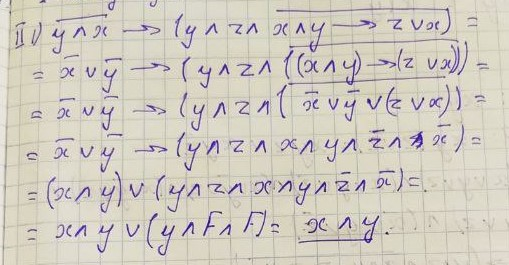 II) \overline{y ∧ x} → (y ∧ z ∧ \overline{x ∧ y → z ∨ x}) =
= x̄ ∨ ȳ → (y ∧ z ∧ (\overline{(x ∧ y) → (z ∨ x)})) =
= x̄ ∨ ȳ → (y ∧ z ∧ (\overline{x̄ ∨ ȳ ∨ (z ∨ x)})) =
= x̄ ∨ ȳ → (y ∧ z ∧ x ∧ y ∧ z̄ ∧ x̄) =
= (x ∧ y) ∨ (y ∧ z ∧ x ∧ y ∧ z̄ ∧ x̄) =
= x ∧ y ∨ (y ∧ F ∧ F) = x ∧ y.